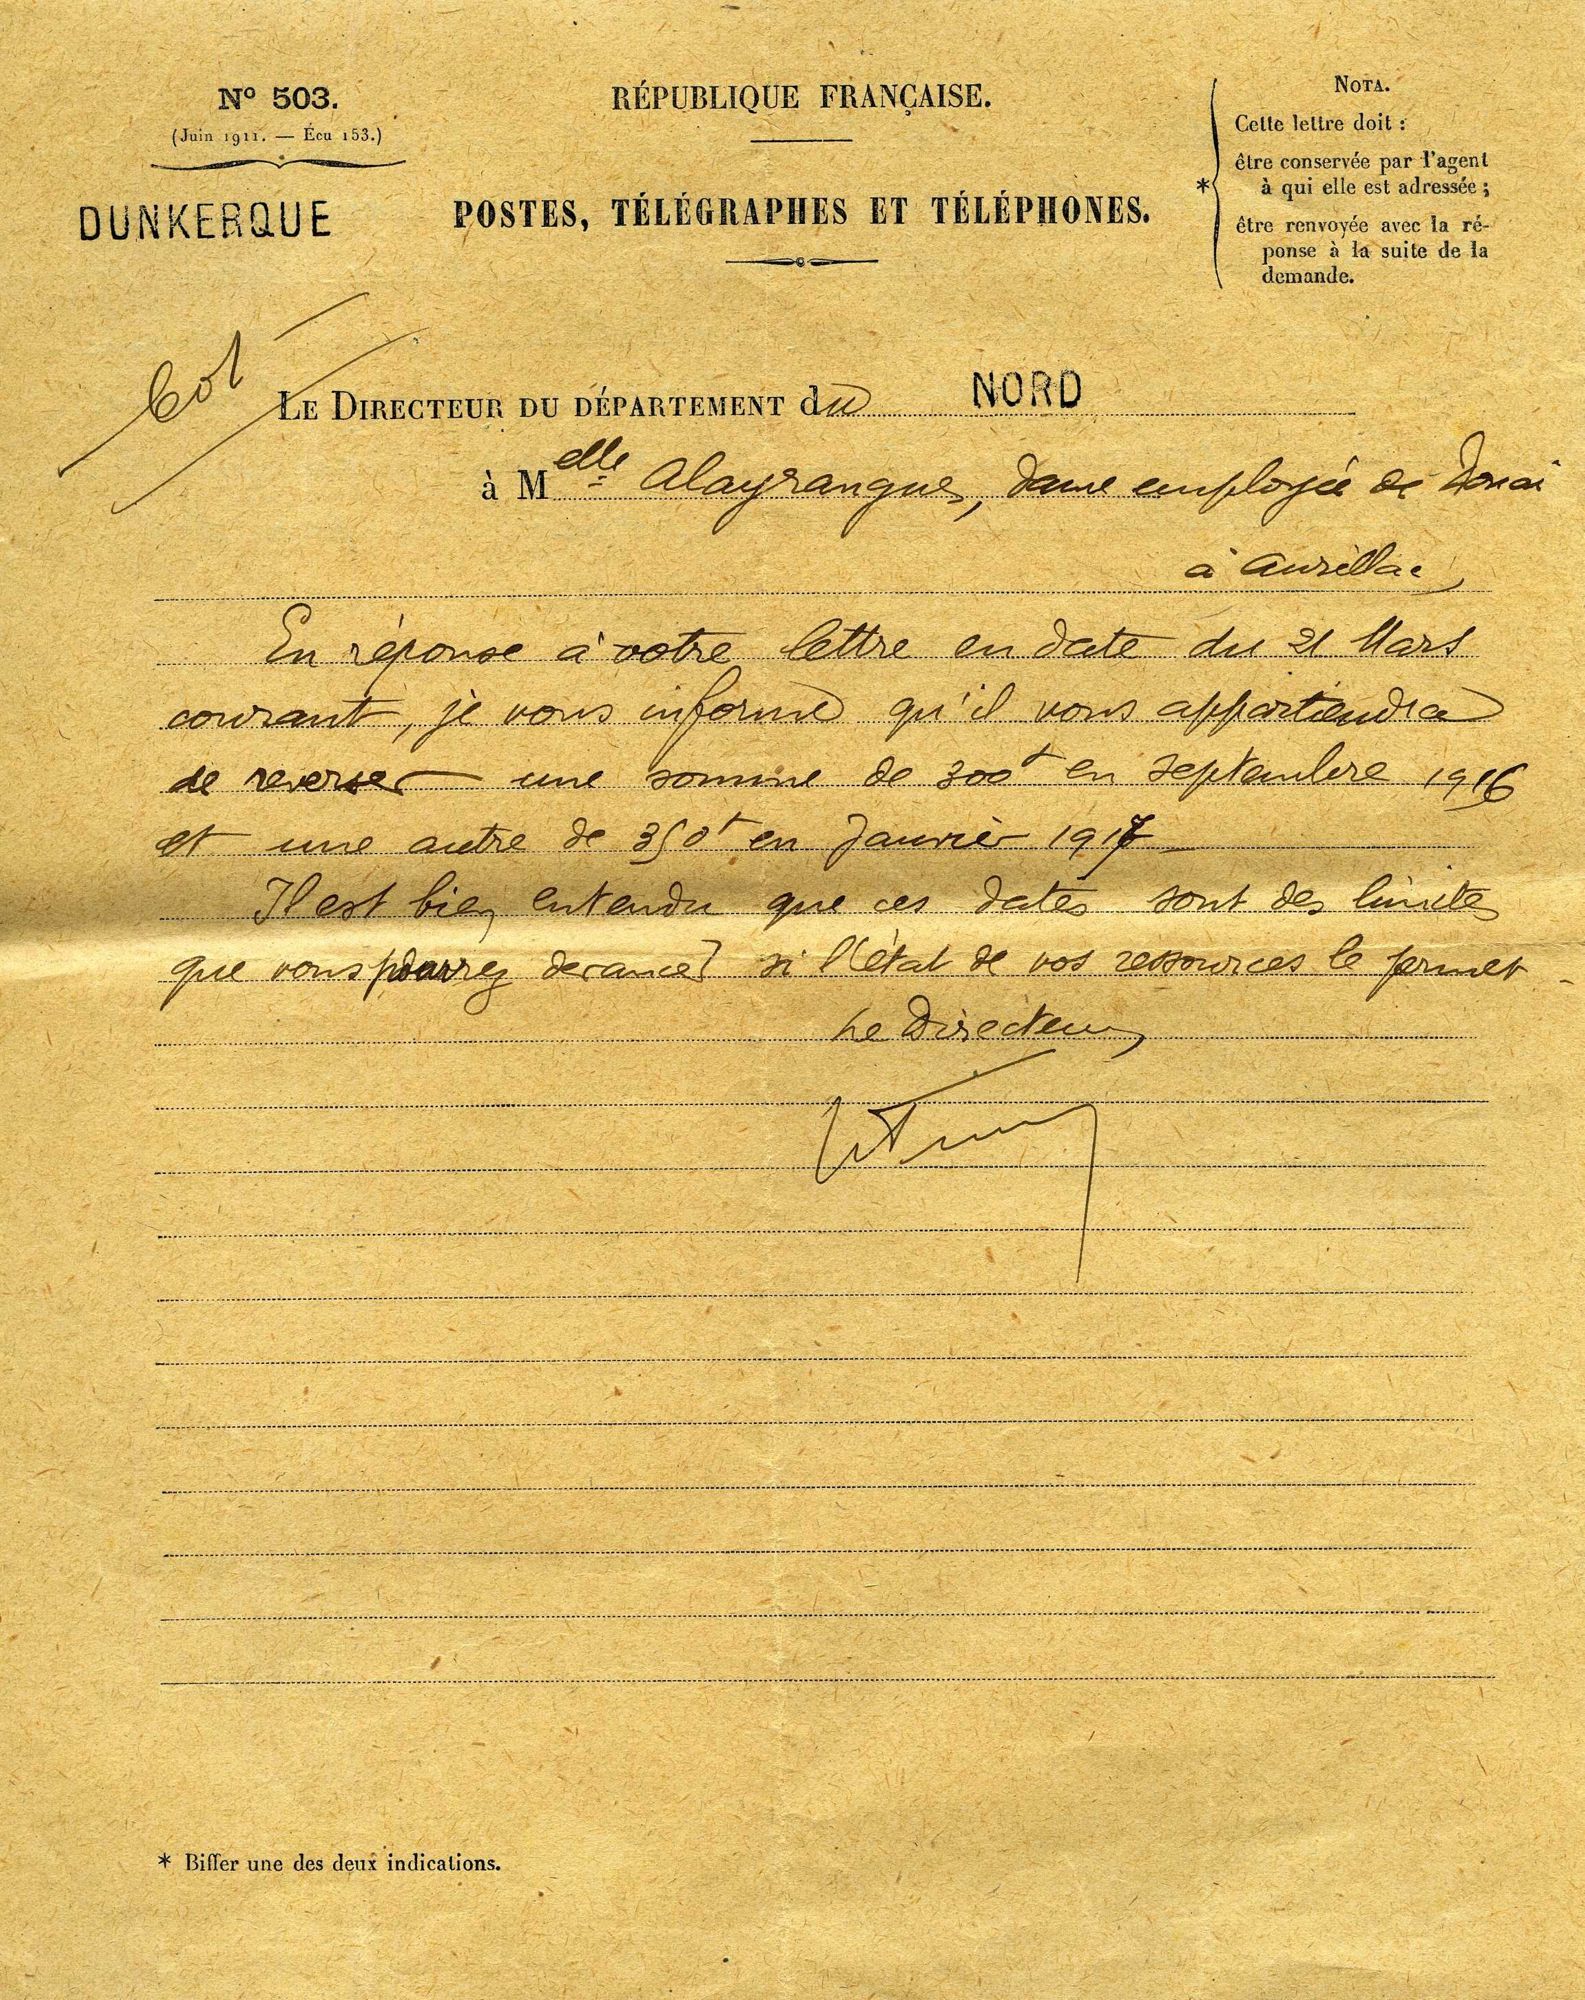 N° 503.
(Juin 1911. — Écu 153.)
DUNKERQUE
RÉPUBLIQUE FRANÇAISE.
POSTES, TÉLÉGRAPHES ET TÉLÉPHONES.
NOTA.
* Cette lettre doit :
être conservée par l'agent
à qui elle est adressée ;
être renvoyée avec la ré-
ponse à la suite de la
demande.
LE DIRECTEUR DU DÉPARTEMENT du NORD
à Melle Alayrangues, dame employée de Douai
à Aurillac,
En réponse à votre lettre en date du 21 Mars
courant, je vous informe qu'il vous appartiendra
de reverser une somme de 300f en septembre 1916
et une autre de 350f en Janvier 1917
Il est bien entendu que ces dates sont des limites
que vous pourrez devancer si l'état de vos ressources le permet.
Le Directeur,
* Biffer une des deux indications.